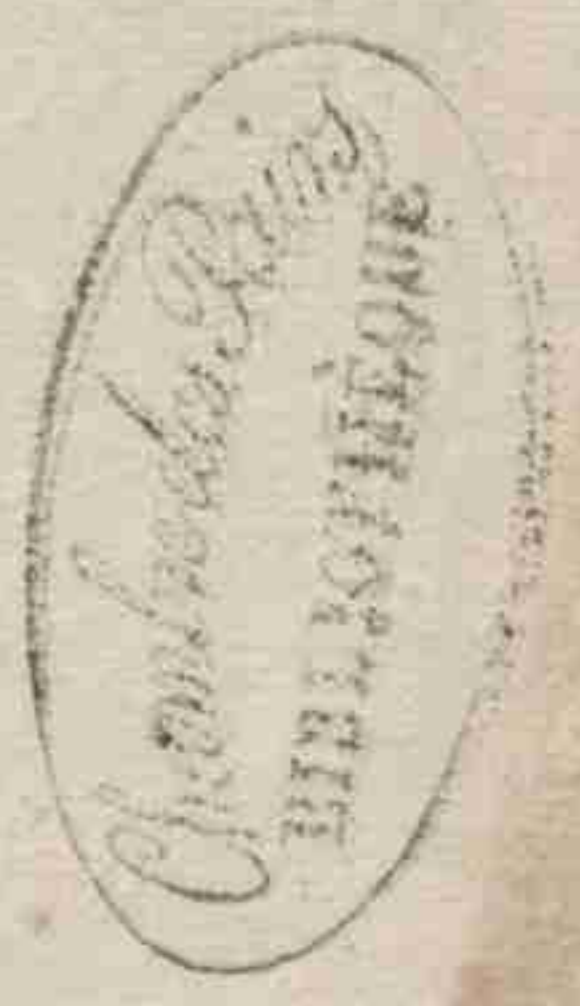 Chambre des Pairs
BIBLIOTHÈQUE